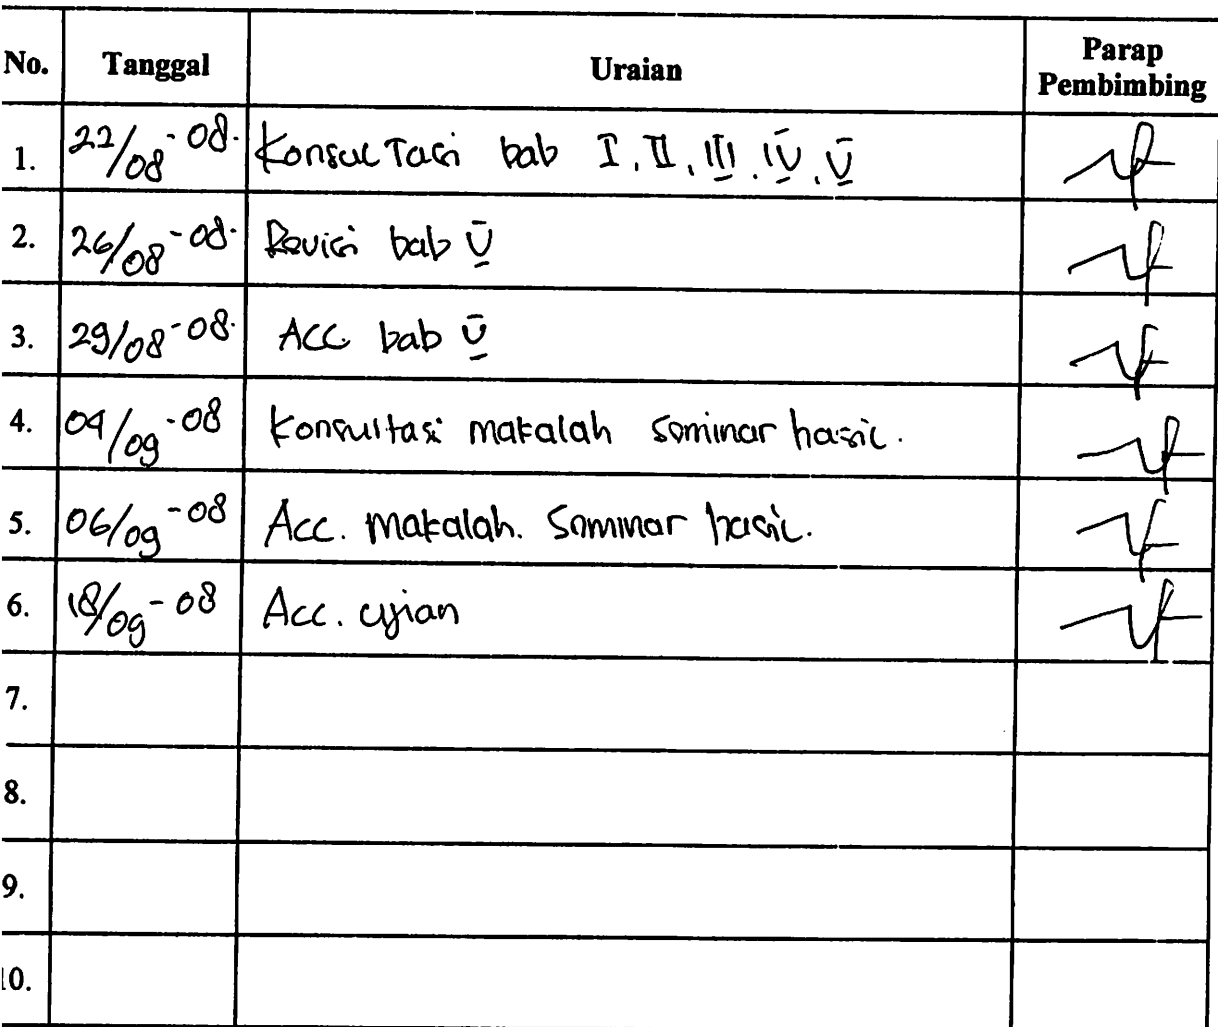 No. Tanggal Uraian Parap Pembimbing
1. 22/08-08. Konsultasi bab I, II, III, IV, V
2. 26/08-08. Revisi bab V
3. 29/08-08. Acc bab V
4. 04/09-08 Konsultasi makalah seminar hasil.
5. 06/09-08 Acc. makalah. Seminar hasil.
6. 18/09-08 Acc. ujian
7.
8.
9.
10.